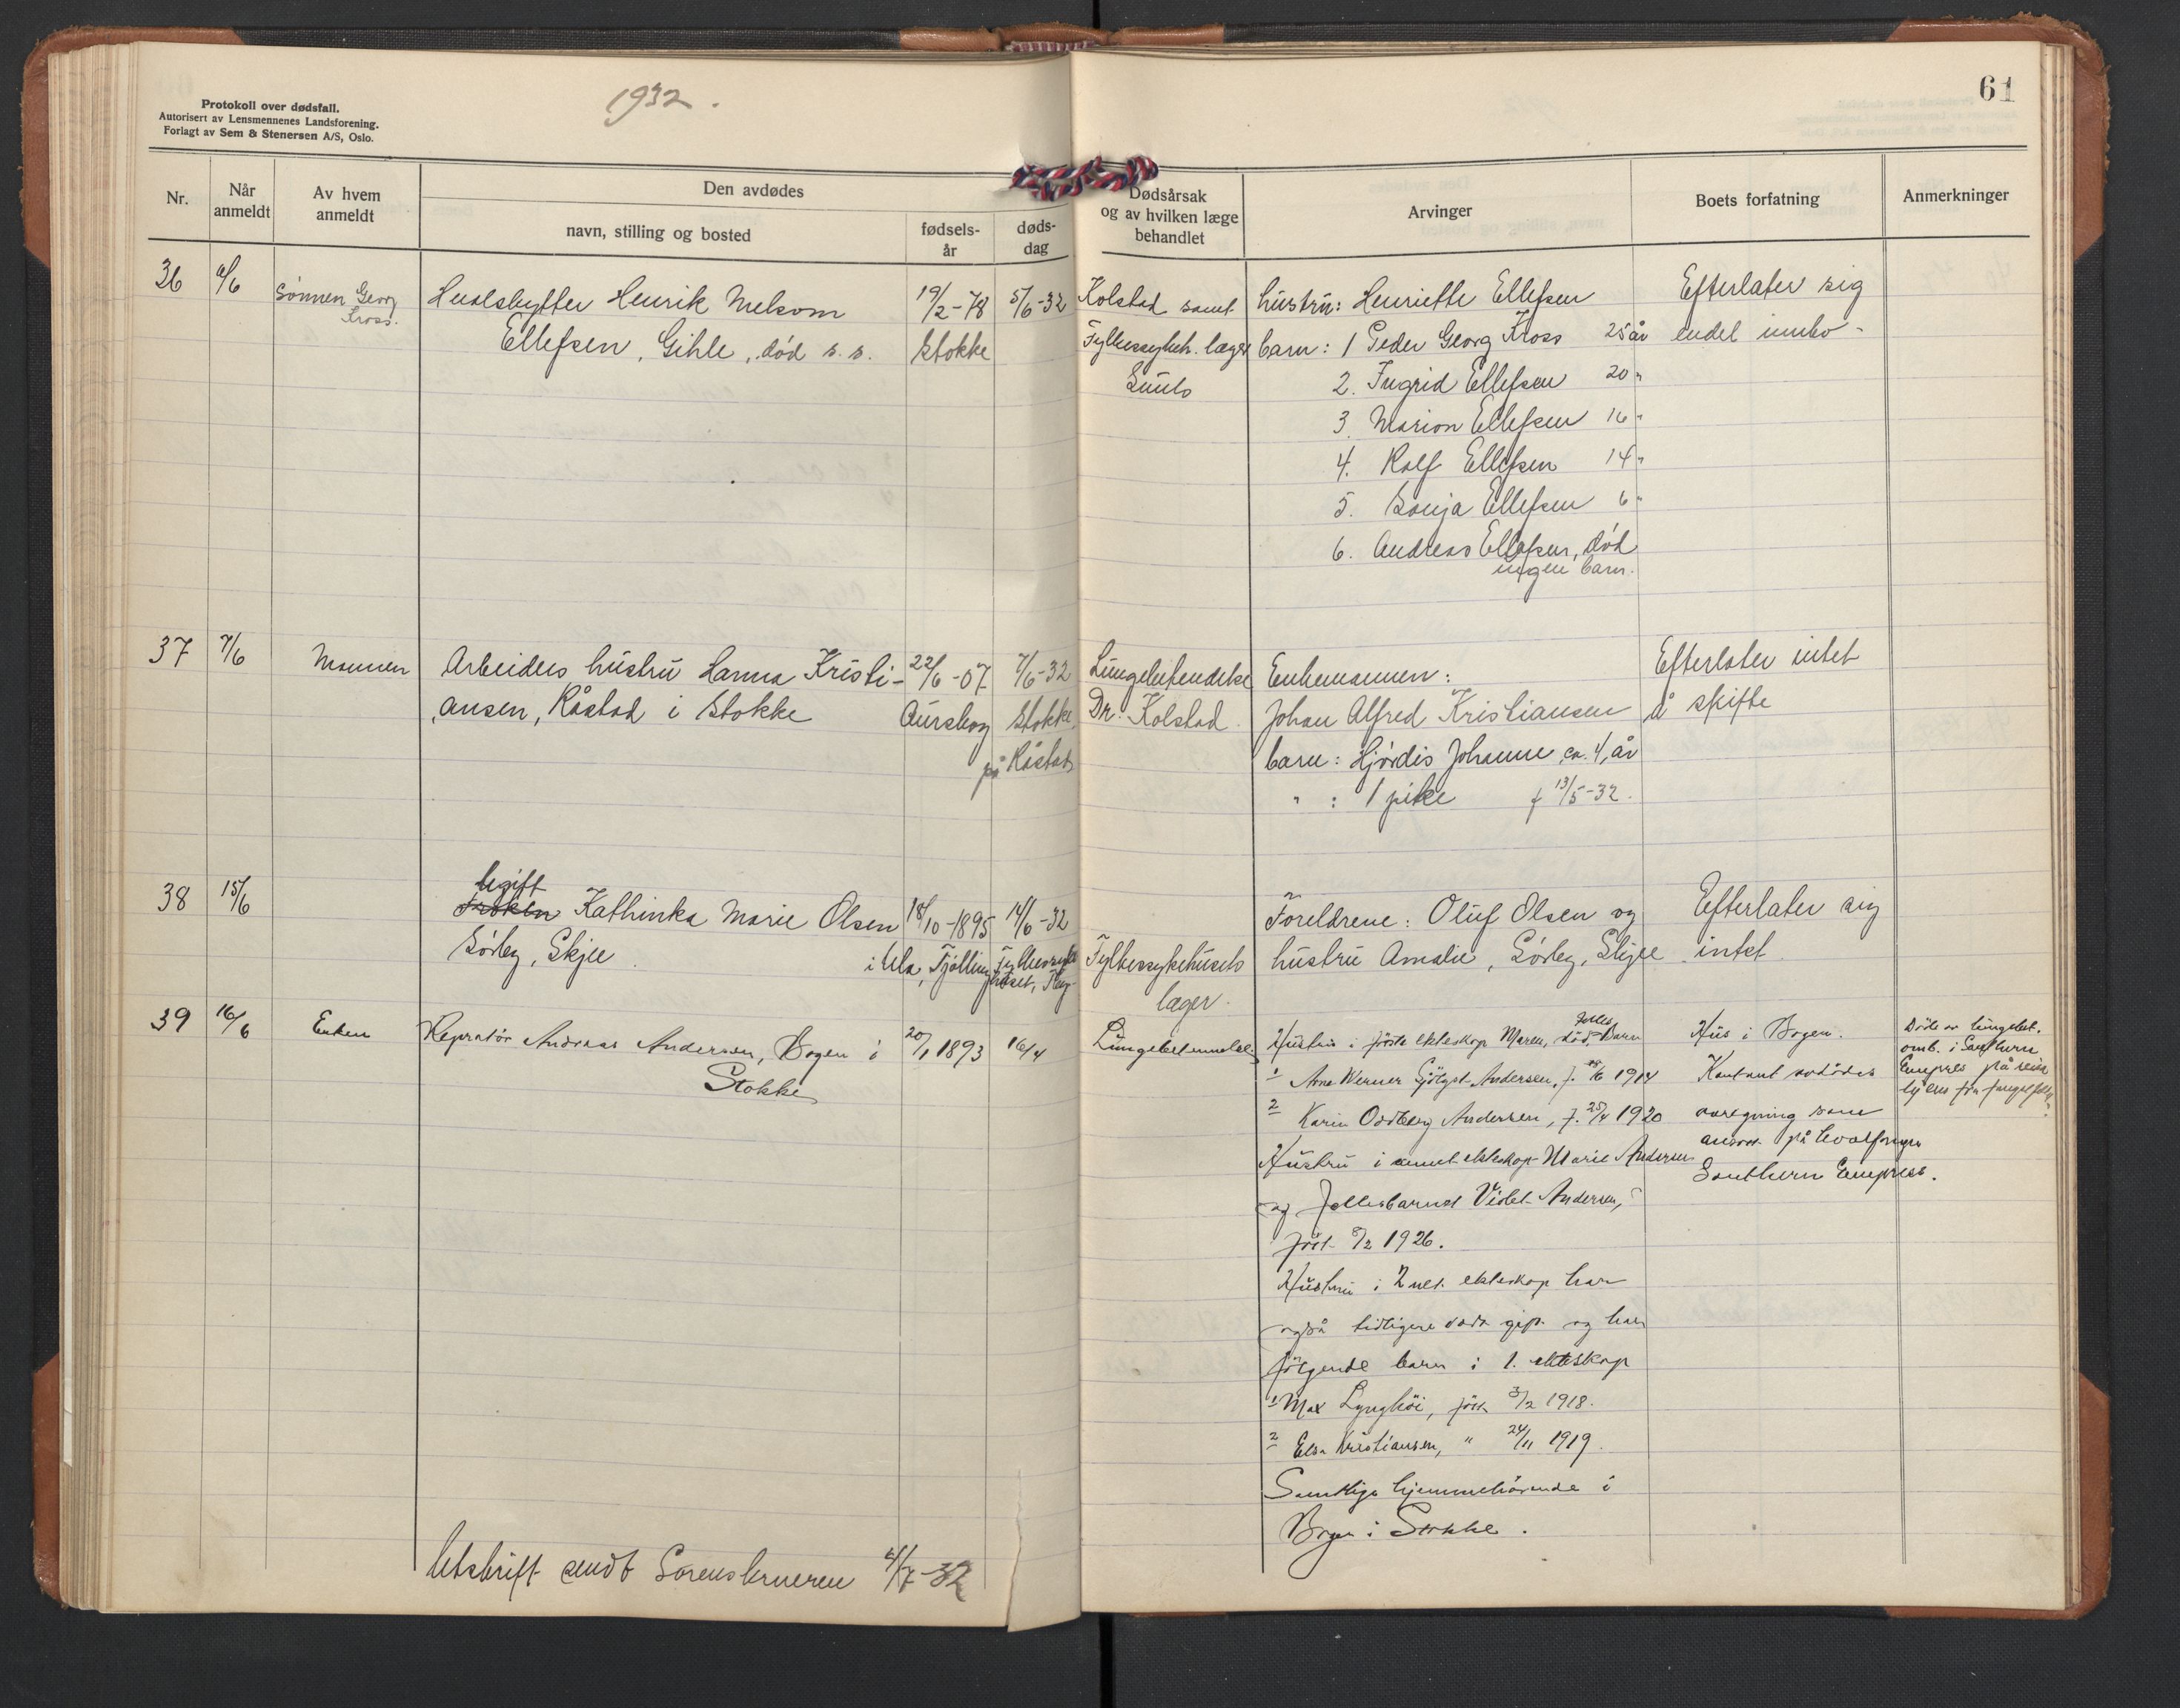 1932.
61
Protokoll over dødsfall.
Autorisert av Lensmennenes Landsforening.
Forlagt av Sem & Stenersen A/S, Oslo.
Nr.
Når anmeldt
Av hvem anmeldt
Den avdødes
navn, stilling og bosted
fødsels-
år
døds-
dag
Dødsårsak
og av hvilken læge
behandlet
Arvinger
Boets forfatning
Anmerkninger
36
6/6
Sønnen Georg
Kross.
Hvalskytter Henrik Melsom
Ellefsen, Gihle, død s. s.
19/2-78
Stokke
5/6-32
Kolstad samt
Fylkessykeh. læger
hustru: Henriette Ellefsen
barn: 1 Peder Georg Kross 25 år
2. Ingrid Ellefsen 20 "
3. Marion Ellefsen 16 "
4. Rolf Ellefsen 14 "
5. Sonja Ellefsen 6 "
6. Andreas Ellefsen, død
ingen barn.
Efterlater sig
endel innbo-
37
7/6
Mannen
Arbeiders hustru Hanna Kristi-
ansen, Råstad i Stokke
22/6-07
Aurskog
7/6-32
Stokke
på Råstad
Lungebetendelse
Dr. Kolstad.
Enkemannen:
Johan Alfred Kristiansen
barn: Hjördis Johanne, ca. 4 år
" : 1 pike f 13/5-32.
Efterlater intet
å skifte
38
15/6
ugift
Frøken Kathinka Marie Olsen
Sörby, Skjee
18/10-1895
i Ula, Tjölling
14/6-32
Fylkessyke
huset, Tbg.
Fylkessykehusets
læger.
Foreldrene: Oluf Olsen og
hustru Amalie, Sörby, Skjee
Efterlater sig
intet
39
16/6
Enken
Repratör Andreas Andersen, Bogen i
Stokke
20/1 1893
16/4
Lungebetennelse
Hustru i første ekteskap Maren, död. Felles
Barn
1 Arne Werner Andersen, f. 1914
2 Karin Oddbjørg Andersen, f. 25/4 1920
Hustru i annet ekteskap Marie Andersen
og fellesbarnet Violet Andersen,
föt 1926.
Hustru i 2net ekteskap har
også tidligere vært gift og har
fölgende barn i 1. ekteskap
1 Max Lynghöi, föt 3/2 1918.
2 Else Kristiansen, " 24/11 1919.
Samtlige hjemmehörende i
Bogen i Stokke.
Hus i Bogen.
Kontant avdödes
avregning som
ansat på hvalfanger
Southern Empress.
Döde av lungebet.
omb. i Southern
Empress på reise
hjem fra fangstfelt.
Utskrift sendt Sorenskriveren 4/7-32